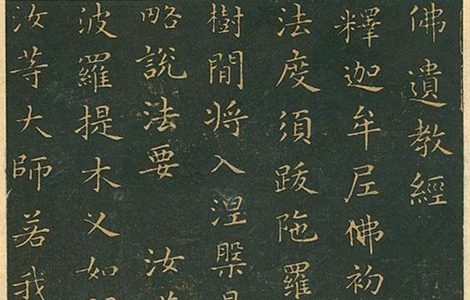 佛遺教經
釋迦牟尼佛初
法度須跋陁羅
樹間將入涅槃
略說法要 汝
波羅提木义如
汝等大師若我